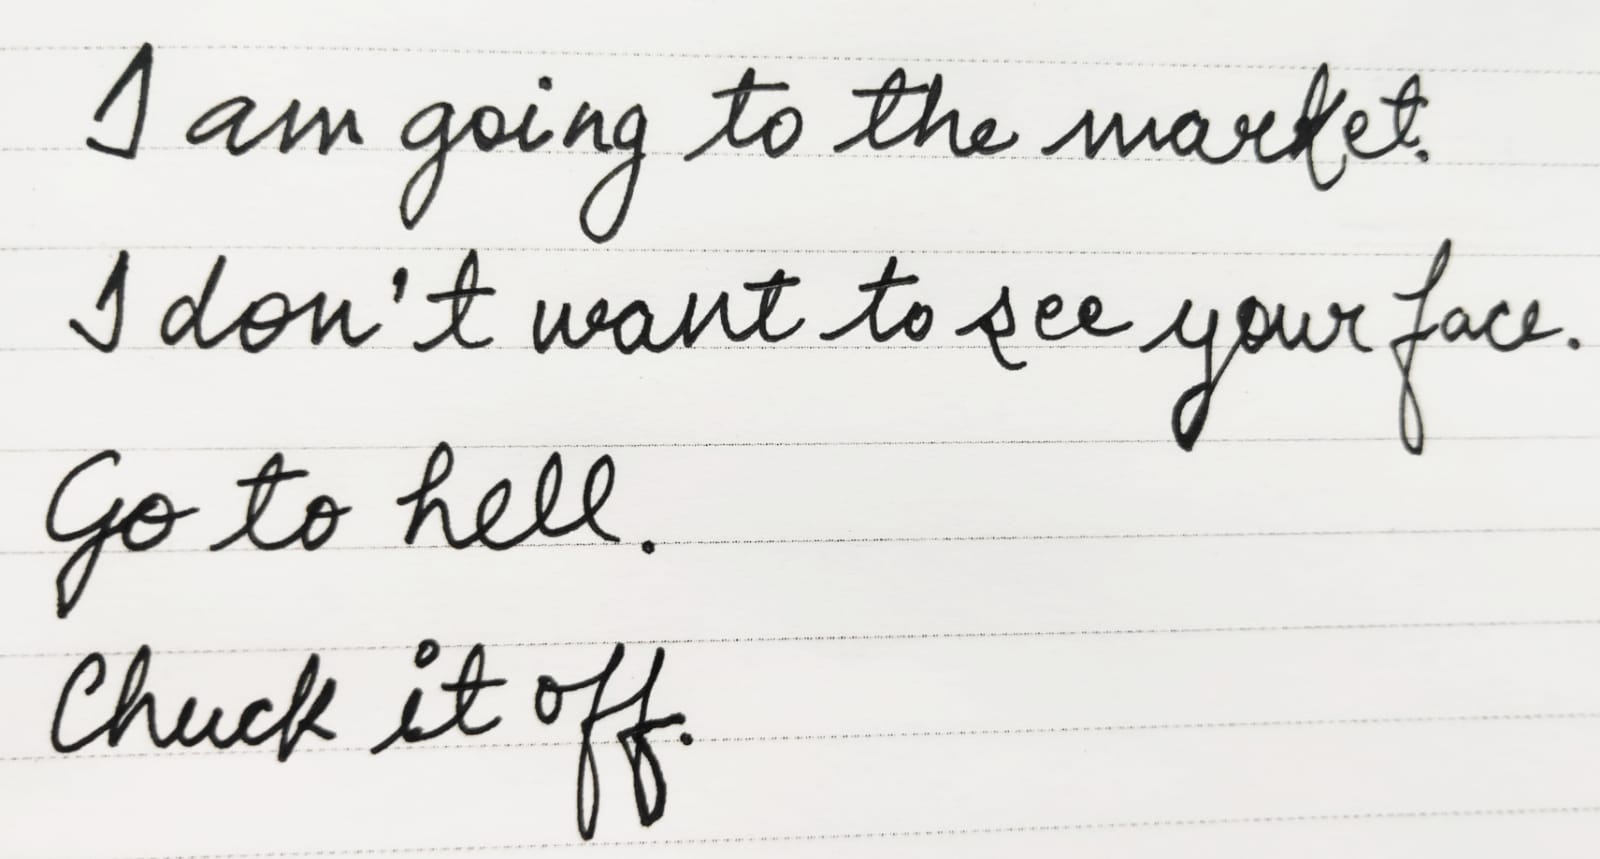 I am going to the market.
I don't want to see your face.
Go to hell.
Chuck it off.